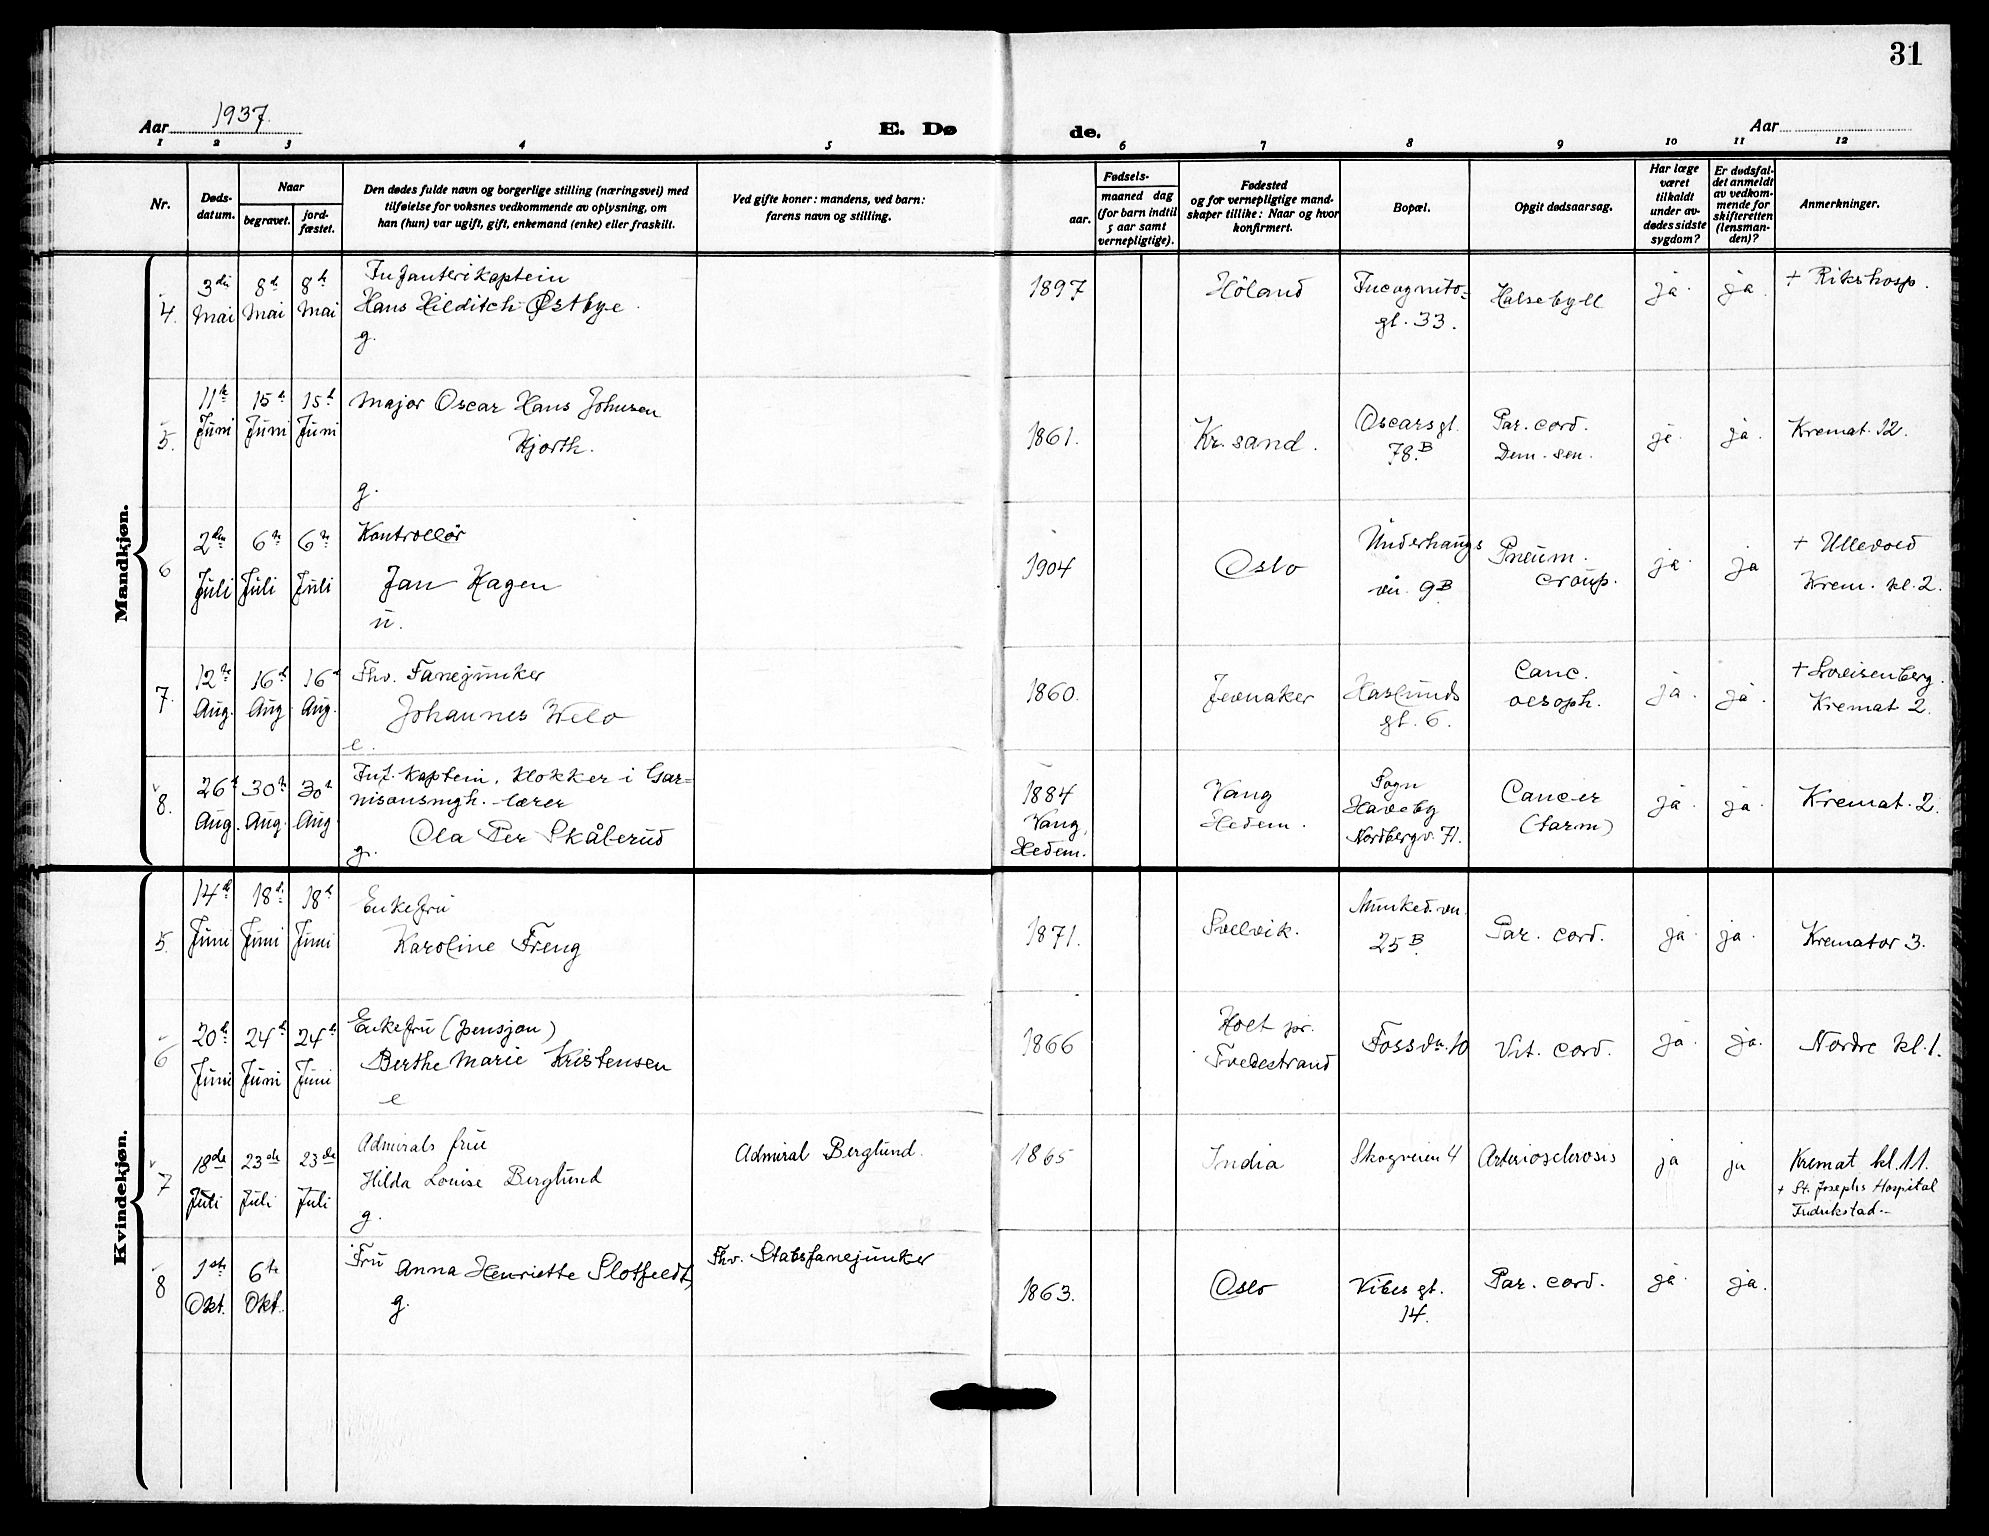 31
Aar 1937.
E. Dø
de.
Aar
1 2 3 4 5 6 7 8 9 10 11 12
Nr.
Døds-
datum.
Naar
begravet.
jord-
fæstet.
Den dødes fulde navn og borgerlige stilling (næringsvei) med
tilføielse for voksnes vedkommende av oplysning, om
han (hun) var ugift, gift, enkemand (enke) eller fraskilt.
Ved gifte koner: mandens, ved barn:
farens navn og stilling.
Fødsels-
aar.
maaned dag
(for barn indtil
5 aar samt
vernepligtige).
Fødested
og for vernepligtige mand-
skaper tillike: Naar og hvor
konfirmert.
Bopæl.
Opgit dødsaarsag.
Har læge
været
tilkaldt
under av-
dødes sidste
sygdom?
Er dødsfal-
det anmeldt
av vedkom-
mende for
skifteretten
(lensman-
den)?
Anmerkninger.
Mandkjøn.
4.
3die
Mai
8de
Mai
8de
Mai
Infanterikaptein
Hans Hilditch Østbye
g.
1897
Höland
Incognito-
gt. 33.
Halsebyll
ja
ja
+ Rikshosp.
5.
11te
Juni
15de
Juni
15de
Juni
Major Oscar Hans Johnsen
Hjorth.
g.
1861.
Kr.sand.
Oscars gt.
78.B
Par. cord.
Dem. sen.
ja
ja.
Kremat. 12.
6
2den
Juli
6te
Juli
6te
Juli
Kontrollör
Jan Hagen
u.
1904
Oslo
Underhaugs
vn. 9B
Pneum.
croup.
ja
ja
+ Ullevold
Krem. kl. 2.
7.
12te
Aug.
16de
Aug
16de
Aug.
Fhv. Fanejunker
Johannes Welo
e.
1860.
Jevnaker
Haslunds
gt. 6.
Canc.
oesoph.
ja
ja.
+ Lovisenberg.
Kremat 2.
8.
26de
Aug.
30te
Aug.
30te
Aug
Inf. Kaptein. Klokker i Gar-
nisonsmgh. lærer
Ola Per Skålerud
g.
1884
Vang,
Hedem.
Vang
Hedem.
Sogn
Haveby
Nordbergv. 71.
Cancer
(tarm)
ja
ja.
Kremat. 2.
Kvindekjøn.
5.
14de
Juni
18de
Juni
18de
Juni
Enkefru
Karoline Freng
1871.
Svelvik.
Munked. vn.
25B
Par. cord.
ja
ja.
Kremator 3.
6
20de
Juni
24de
Juni
24de
Juni
Enkefru (pensjon)
Berthe Marie Kristensen
e
1866
Holt pr.
Tvedestrand
Fossvn. 10
Vit. cord.
ja
ja.
Nordre kl. 1.
7
18de
Juli
23de
Juli
23de
Juli
Admirals frue
Hilda Louise Berglund
g.
Admiral Berglund.
1865
India
Skogveien 4
Arteriosclerosis
ja
ja
Kremat kl. 11.
+ St. Josephs Hospital
Fredrikstad.-
8
1ste
Okt.
6te
Okt.
Fru Anna Henriette Slotfeldt,
g.
Fhv. Stabsfanejunker
1863.
Oslo
Vibes gt.
14.
Par. cord.
ja
ja.